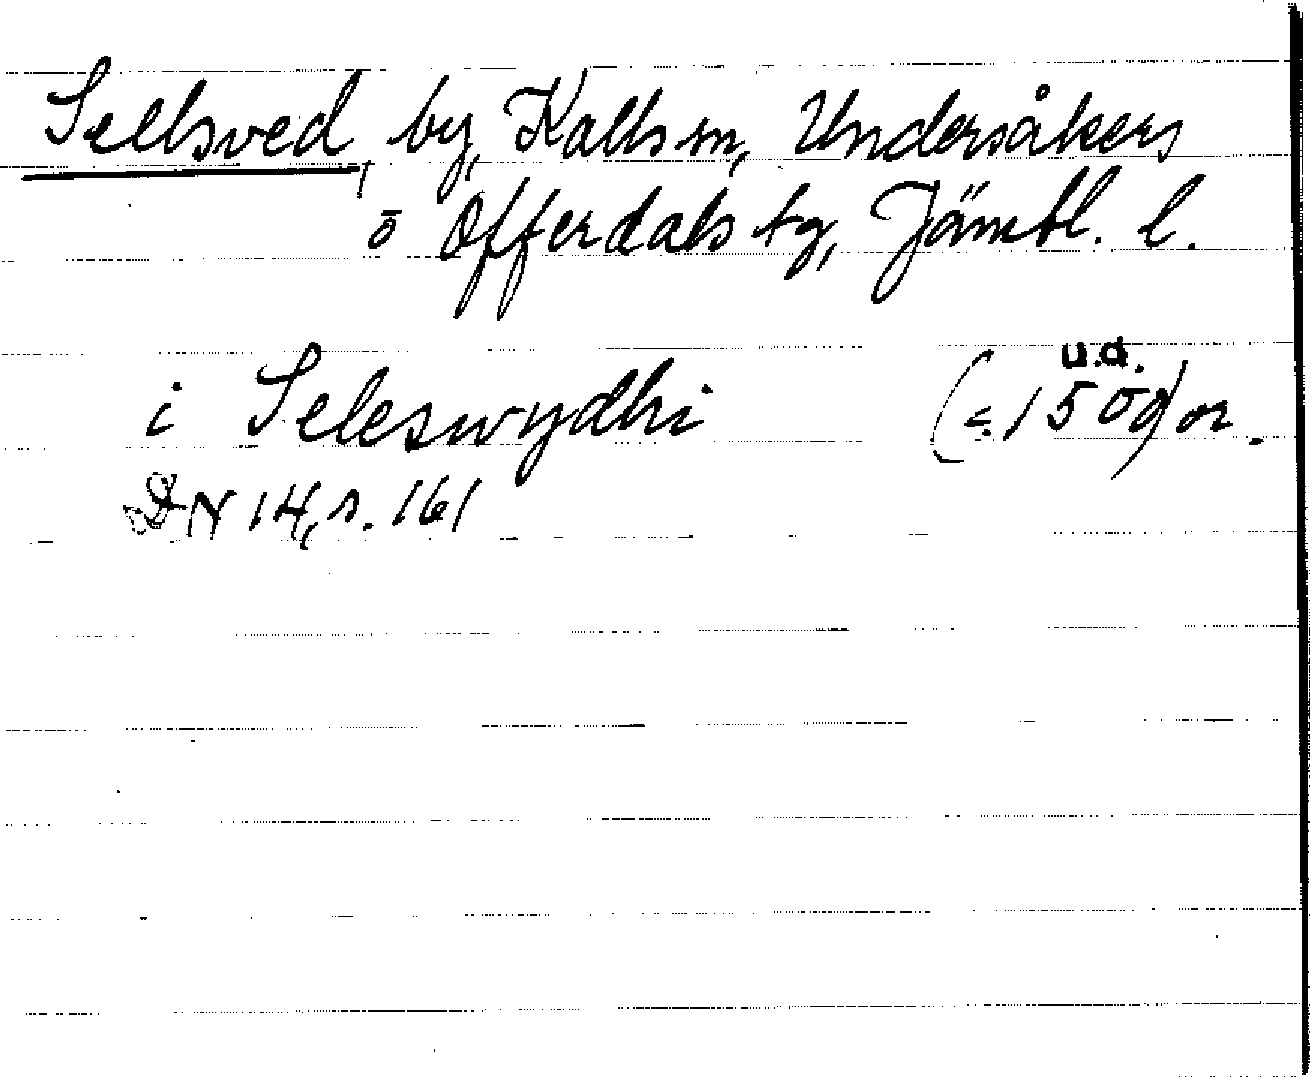 Sellsved, by, Kalls sn, Undersåkers
o Offerdals tg, Jämtl. l.
u.d.
i Seleswydhi (≤1500) or.
DN 14, s. 161